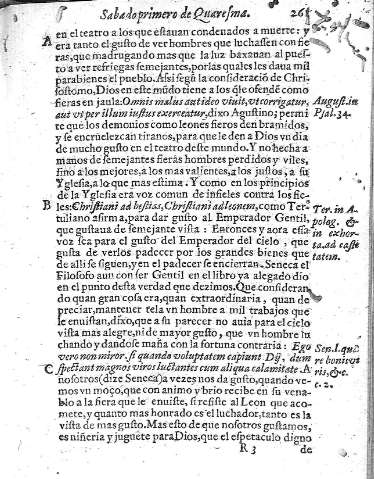 Sabado primero de Quaresma. 261
A en el teatro a los que estauan condenados a muerte: y
era tanto el gusto de ver hombres que luchassen con fie
ras, que madrugando mas que la luz baxauan al pues-
to a ver refriegas semejantes, por las quales les daua mil
parabienes el pueblo. Assi segũ la consideraciõ de Chri-
sostomo, Dios en este mũdo tiene a los q̃ le ofendẽ como
fieras en jaula: Omnis malus aut ideo viuit, vt corrigatur,
aut vt per illum iustus exerceatur, dixo Agustino; permi
te què los demonios como leones fieros den bramidos,
y se encruelezcan tiranos, para que le den a Dios vn dia
de mucho gusto en el teatro deste mundo. Y no hecha a
manos de semejantes fieras hombres perdidos y viles,
sino a los mejores, a los mas valientes, a los justos, a su
Yglesia, a lo que mas estima. Y como en los principios
de la Yglesia era voz comun de infieles contra los fie-
B les: Christiani ad bestias, Christiani ad leonem, como Ter-
tuliano afirma, para dar gusto al Emperador Gentil,
que gustaua de semejante vista: Entonces y aora essa
voz sea para el gusto del Emperador del cielo, que
gusta de verlos padecer por los grandes bienes que
de alli se siguen, y en el padecer se encierran. Seneca el
Filosofo aun con ser Gentil en el libro ya alegado dio
en el punto desta verdad que dezimos. Que consideran
do quan gran cosa era, quan extraordinaria, quan de
preciar, mantener tela vn hombre a mil trabajos que
le enuistan, dixo, que a su parecer no auia para el cielo
vista mas alegre, ni de mayor gusto, que vn hombre lu
chando y dandose maña con la fortuna contraria: Ego
vero non miror, si quando voluptatem capiunt Dij, dum
C spectant magnos viros luctantes cum aliqua calamitate. A
nosotros (dize Seneca) a vezes nos da gusto, quando ve-
mos vn moço, que con animo y brio recibe en su vena-
blo a la fiera que le enuiste, si resiste al Leon que aco-
mete, y quanto mas honrado es el luchador, tanto es la
vista de mas gusto. Mas esto de que nosotros gustamos,
es niñeria y juguete para Dios, que el espetaculo digno
R 3 de
August. in
Psal. 34.
Ter. in A-
polag. &
in exhor-
ta. ad casti
tatem.
Sen. l. qua
re bonis vi
ris, &c.
c. 2.